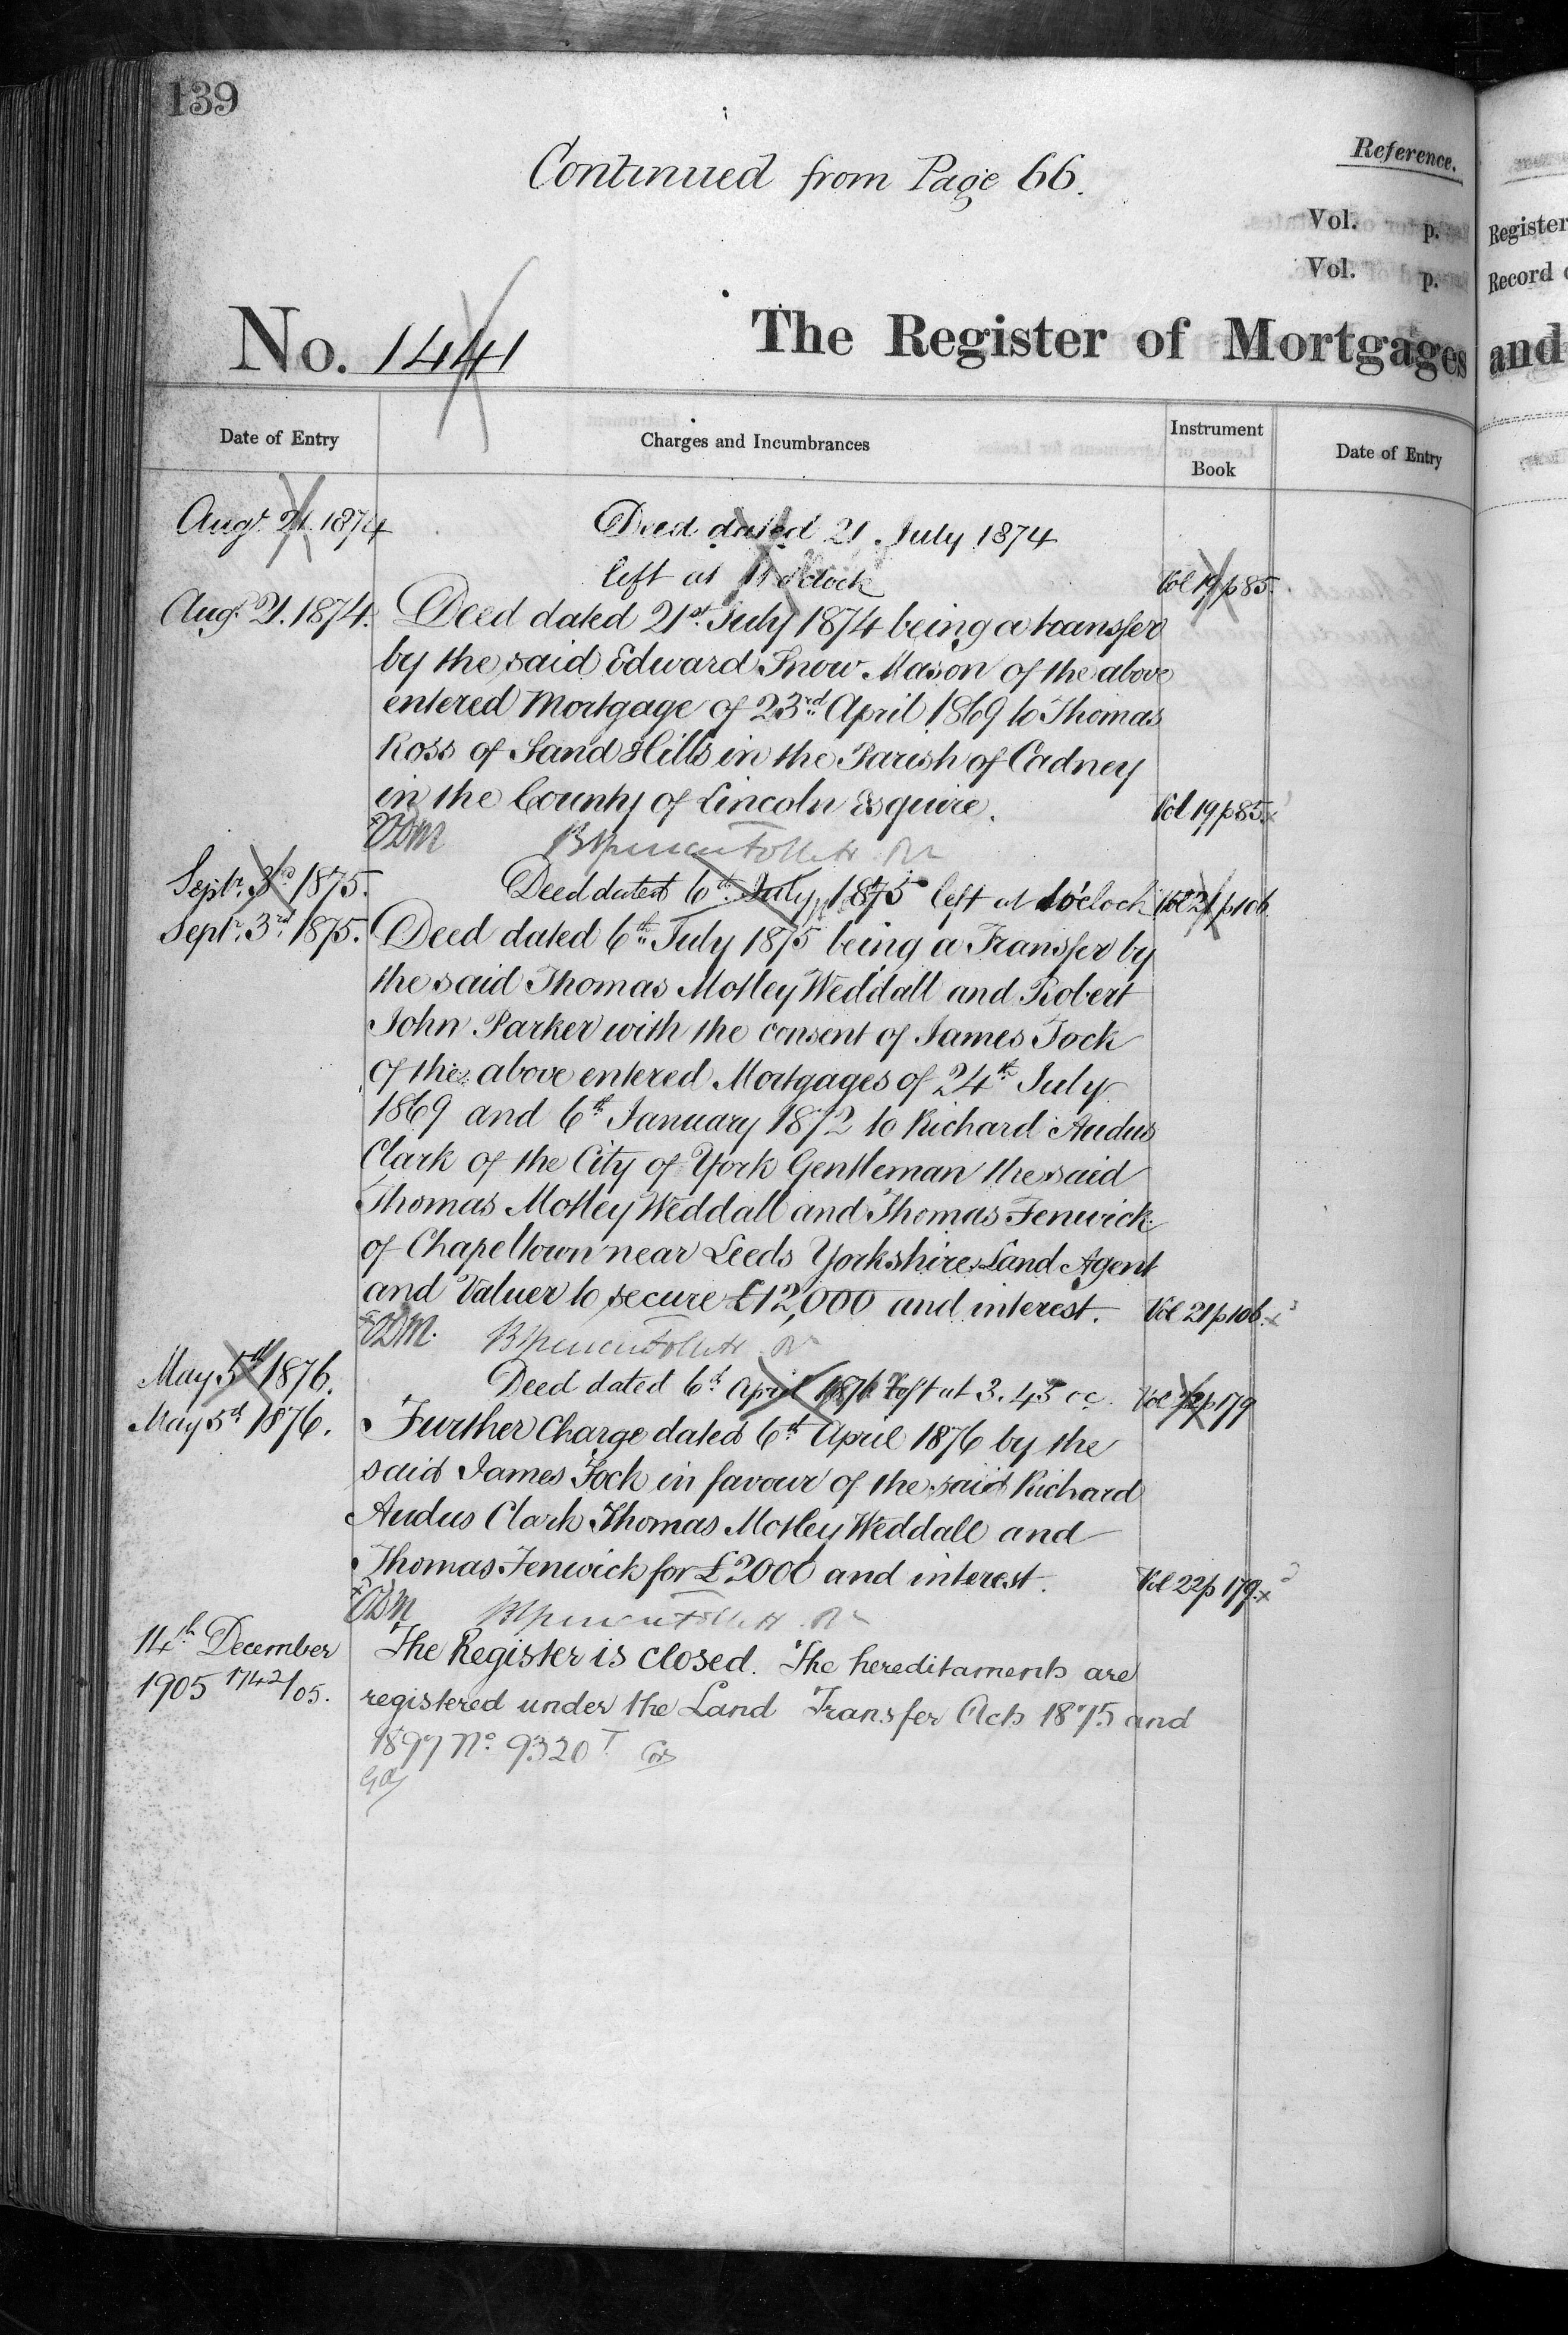 139
Continued from Page 66.
Reference.
Vol. p.
Vol. p.
Register
Record
No. 1441
The Register of Mortgages and
Date of Entry
Charges and Incumbrances
Instrument
Book
Date of Entry
Augt. 21. 1874
Deed dated 21 July 1874
left at 11 o'clock
Vol 19 p 85.
Augt. 21. 1874.
Deed dated 21st. July 1874 being a transfer
by the said Edward Snow Mason of the above
entered Mortgage of 23rd April 1869 to Thomas
Ross of Sand Hills in the Parish of Cadney
in the County of Lincoln Esquire.
Vol 19 p 85.x
Septr. 3rd 1875.
Deed dated 6th July 1875 left at 1 o'clock
Vol 21 p 106
Septr. 3rd 1875.
Deed dated 6th July 1875 being a Transfer by
the said Thomas Motley Weddall and Robert
John Parker with the consent of James Jock
of the above entered Mortgages of 24th July
1869 and 6th January 1872 to Richard Audus
Clark of the City of York Gentleman the said
Thomas Motley Weddall and Thomas Fenwick
of Chapeltown near Leeds Yorkshire Land Agent
and Valuer to secure £12,000 and interest.
Vol 21 p 106.x
May 5th 1876.
Deed dated 6th April 1876 left at 3.45 oc.
Vol 22 p 179
May 5th 1876.
Further Charge dated 6th April 1876 by the
said James Jock in favour of the said Richard
Audus Clark Thomas Motley Weddall and
Thomas Fenwick for £2000 and interest.
Vol 22 p 179.x
14th December
1905 1742/05.
The Register is closed. The hereditaments are
registered under the Land Transfer Acts 1875 and
1897 No. 9320 T